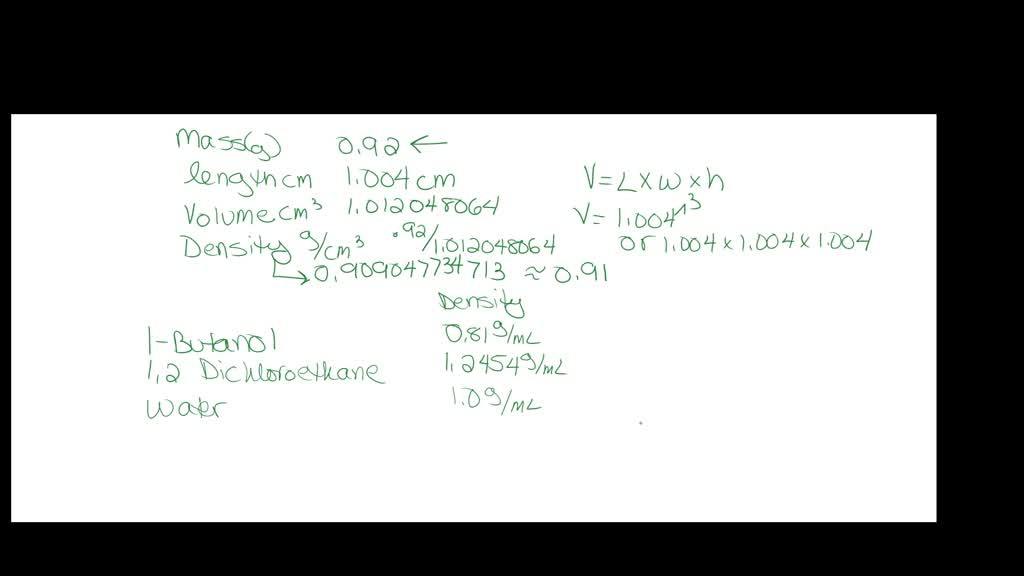 Mass(g) 0.92 ←
length cm 1.004 cm
V = L x w x h
Volume cm³ 1.012048064
V = 1.004^3
Density g/cm³ .92/1.012048064
or 1.004 x 1.004 x 1.004
↳ 0.909047734713 ≈ 0.91
Density
1-Butanol 0.81 g/mL
1,2 Dichloroethane 1.2454 g/mL
Water 1.0 g/mL